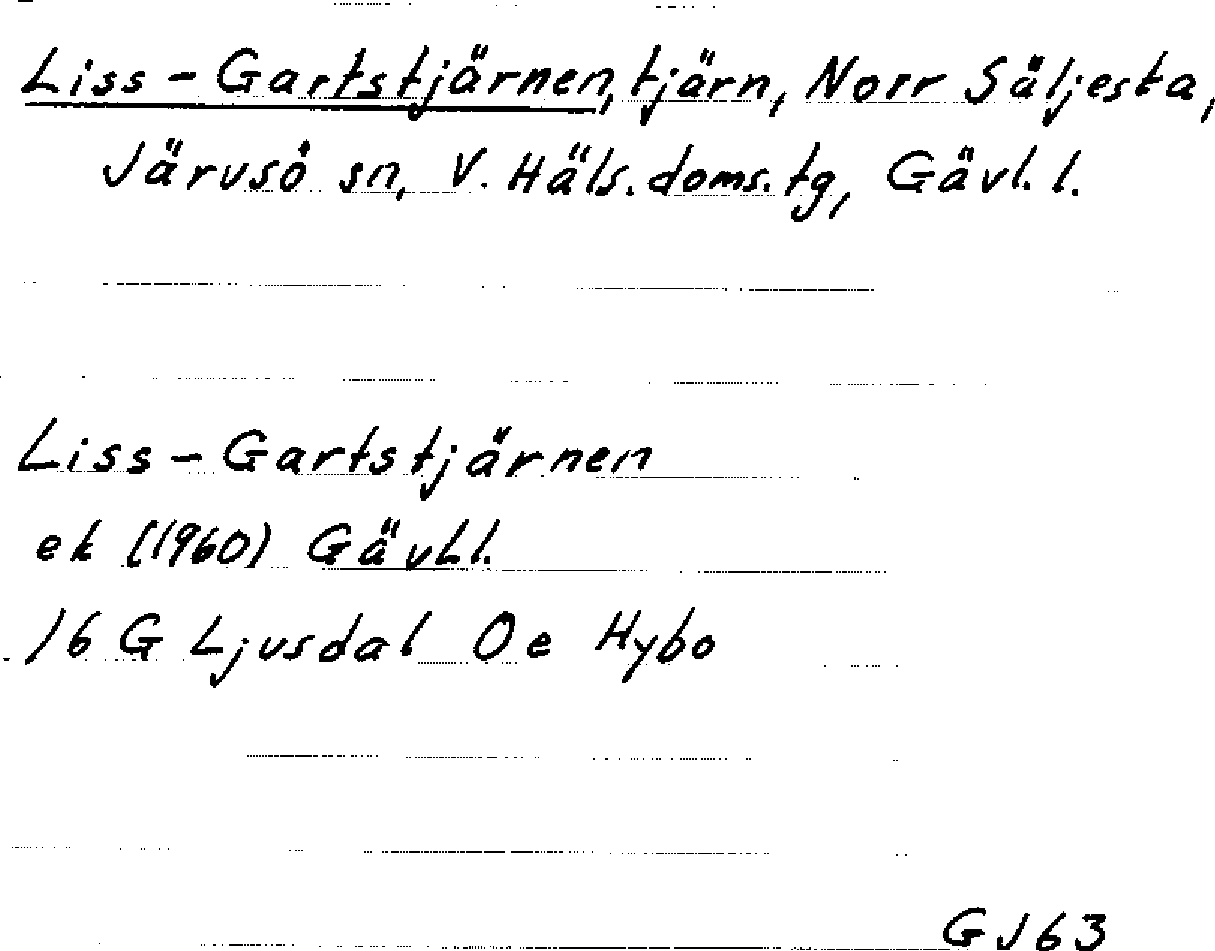 Liss-Gartstjärnen, tjärn, Norr Säljesta,
Järvsö sn, V. Häls. doms. tg, Gävl. l.
Liss-Gartstjärnen
ek (1960) Gävl.l.
16 G Ljusdal 0e Hybo
GJ63